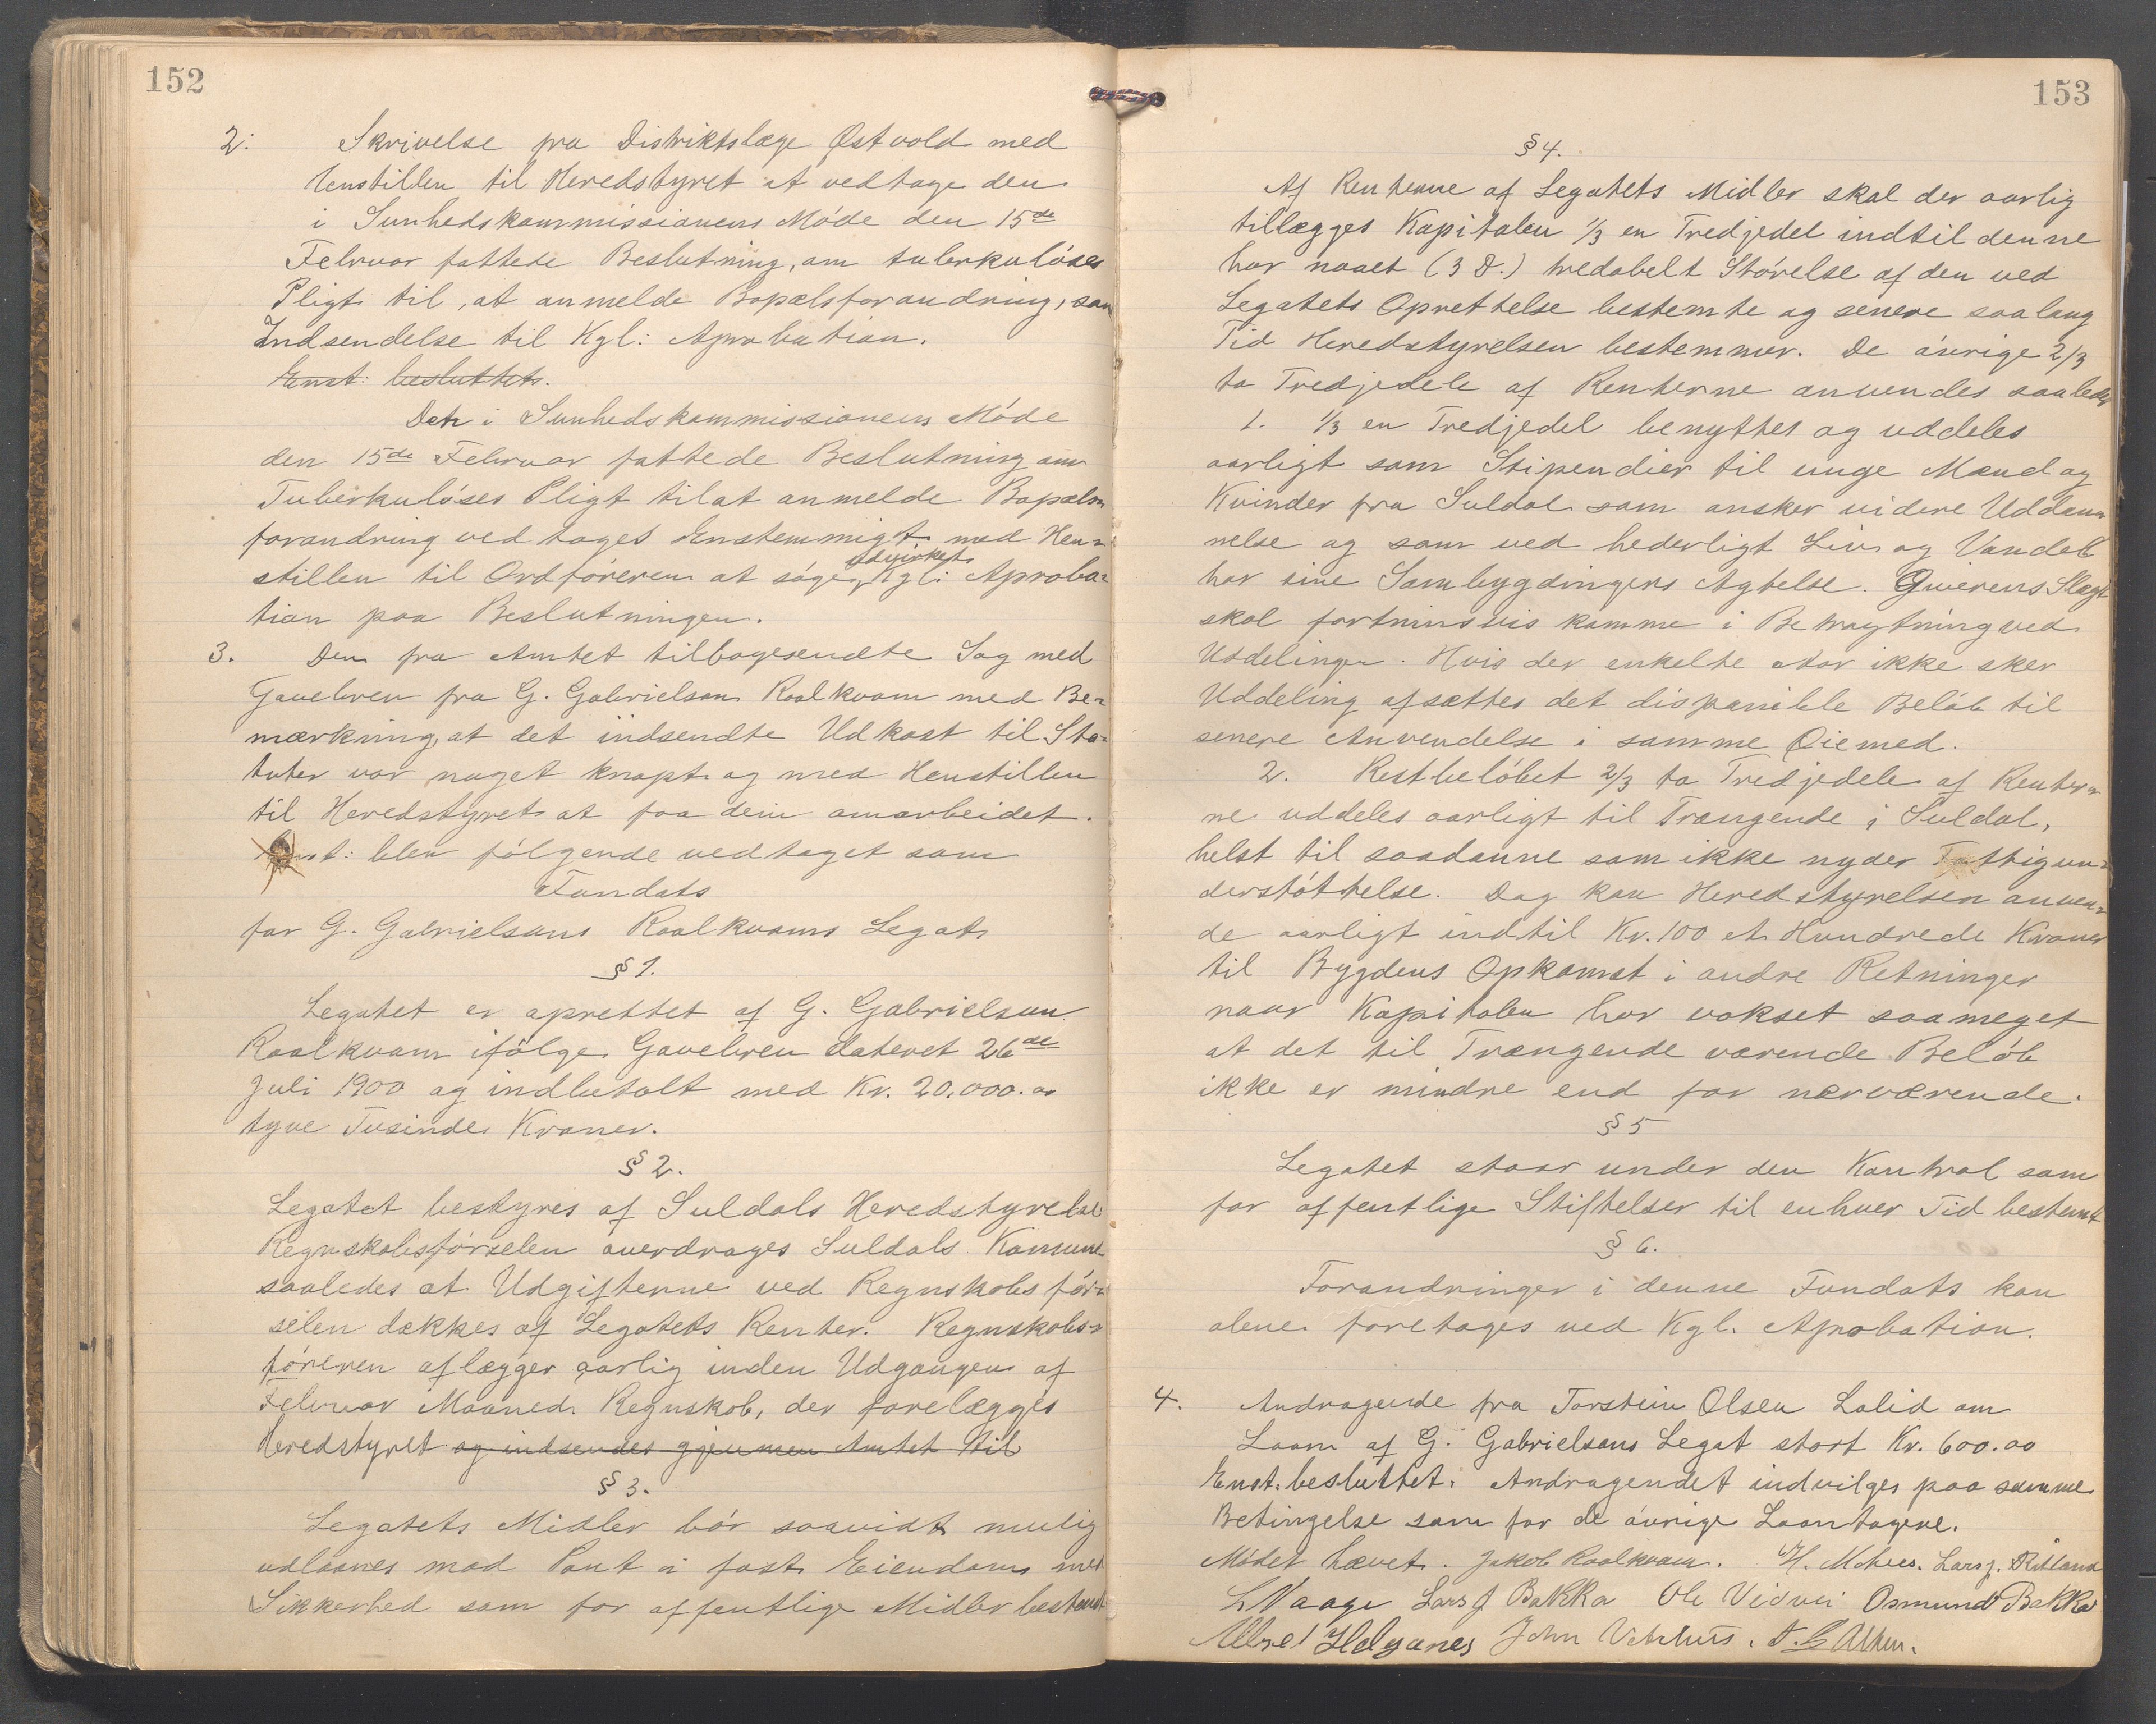 152
2. Skrivelse fra Distriktslæge Østvold med
Henstillen til Heredstyret at vedtage den
i Sunhedskommissionens Møde den 15de
Februar fattede Beslutning, om tuberkuløses
Pligt til, at anmelde Bopælsforandring, som
Indsendelse til Kgl: Aprobation.
Enst: besluttet.
Den i Sunhedskommissionens Møde
den 15de Februar fattede Beslutning om
Tuberkuløses Pligt til at anmelde Bopæls
forandring vedtages Enstemmigt med Hen-
stillen til Ordføreren at søge udvirket Kgl: Aproba-
tion paa Beslutningen.
3. Den fra Amtet tilbagesendte Sag med
Gavebrev fra G. Gabrielson Roalkvam med Be-
mærkning, at det indsendte Udkast til Sta-
tuter var noget knapt og med Henstillen
til Heredstyret at faa dem omarbeidet.
Enst: blev følgende vedtaget som
Fundats
for G. Gabrielsons Roalkvams Legat
§ 1.
Legatet er oprettet af G. Gabrielson
Roalkvam ifølge Gavebrev dateret 26de
Juli 1900 og indbetalt med Kr. 20.000.00
tyve Tusinde Kroner.
§ 2.
Legatet bestyres af Suldals Heredstyrelse
Regnskabsførselen overdrages Suldals Komune
saaledes at Udgifterne ved Regnskabsfør-
selen dækkes af Legatets Renter. Regnskabs-
føreren aflægger aarlig inden Udgangen af
Februar Maaned Regnskab, der forelægges
Heredstyret og indsendes gjennem Amtet til
§ 3.
Legatets Midler bør saavidt mulig
udlaanes mod Pant i fast Eiendom med
Sikkerhed som for offentlige Midler bestemt
153
§ 4.
Af Renterne af Legatets Midler skal der aarlig
tillægges Kapitalen 1/3 en Tredjedel indtil denne
har naaet (3 D.) tredobelt Størelse af den ved
Legatets Oprettelse bestemte og senere saalang
Tid Heredstyrelsen bestemmer. De øvrige 2/3
to Tredjedele af Renterne anvendes saaledes
1. 1/3 en Tredjedel benyttes og uddeles
aarligt som Stipendier til unge Mænd og
Kvinder fra Suldal som ønsker videre Uddan
nelse og som ved hederligt Liv og Vandel
har sine Sambygdingers Agtelse. Giverens Slægt
skal fortrinsvis komme i Betragtning ved
Uddelingen. Hvis der enkelte Aar ikke sker
Uddeling afsættes det disponible Beløb til
senere Anvendelse i samme Øiemed.
2. Restbeløbet 2/3 to Tredjedele af Renter-
ne uddeles aarligt til Trængende i Suldal,
helst til saadanne som ikke nyder Fattigun-
derstøttelse. Dog kan Heredstyrelsen anven-
de aarligt indtil Kr. 100 et Hundrede Kroner
til Bygdens Opkomst i andre Retninger
naar Kapitalen har vokset saameget
at det til Trængende værende Beløb
ikke er mindre end for nærværende.
§ 5
Legatet staar under den Kontrol som
for offentlige Stiftelser til enhver Tid bestemt
§ 6.
Forandringer i denne Fundats kan
alene foretages ved Kgl. Aprobation.
4. Andragende fra Torstein Olsen Lalid om
Laan af G. Gabrielsons Legat stort Kr. 600.00
Enst. besluttet. Andragendet indvilges paa samme
Betingelse som for de øvrige Laantagere.
Mødet hævet. Jakob Roalkvam. H. Mehus. Lars J. Ritland
L Vaage Lars J Bakka Ole Vidvei Osmund Bakka
Helganes John Vetrhus.